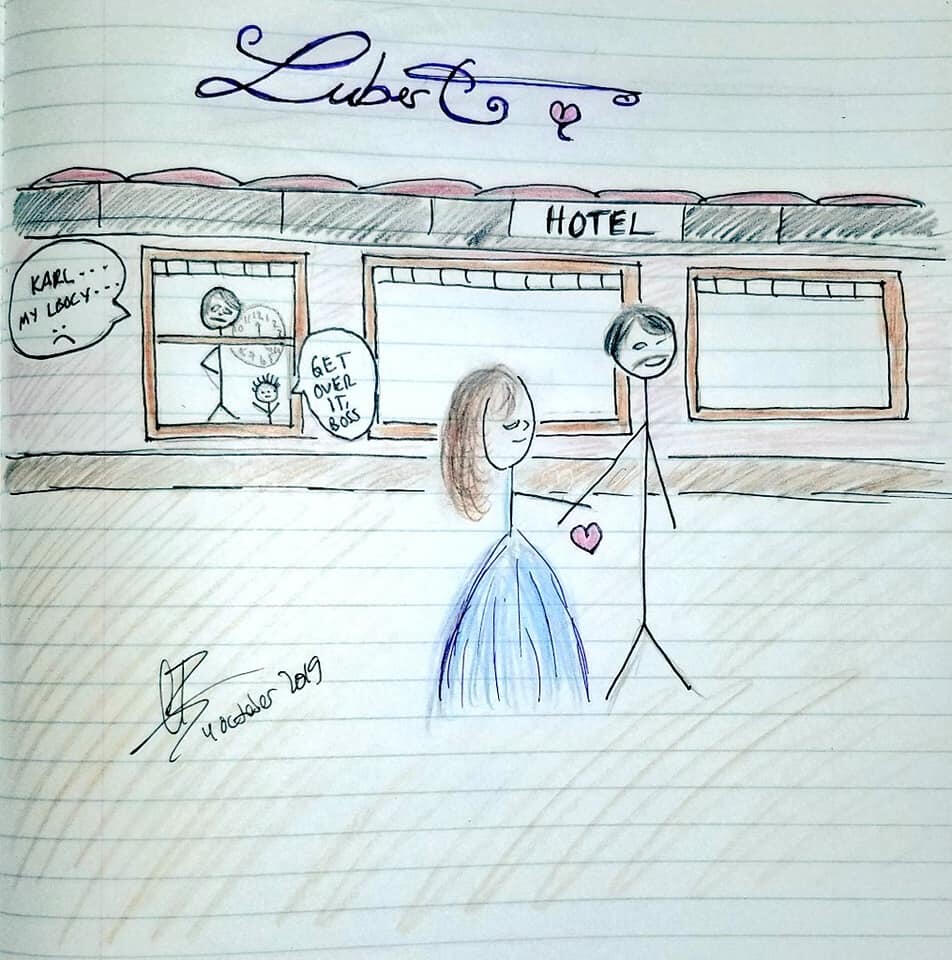 Lubert
HOTEL
KARL...
MY LOOCY...
GET
OVER
IT,
BOSS
4 october 2019